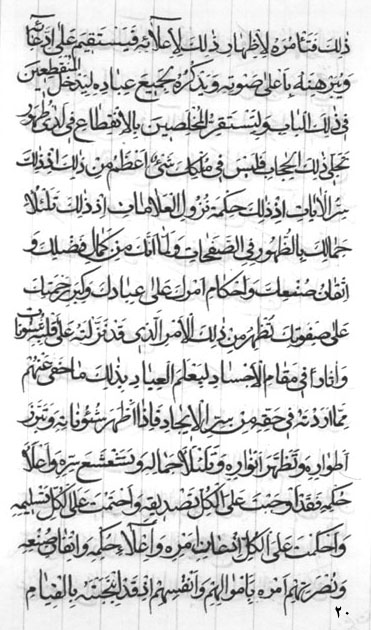 ذلك فتأمره لإظهار ذلك لإعلائه فيستقيم على ادعائه
ويبرهنه بأعلى صوته ويذكره لجميع عباده ليدخل المنقطعين
في ذلك الباب وليستقر المخلصين بالانقطاع في لدى ظهور
تجلي ذلك الحجاب فليس في ملكك شيء اعظم من ذلك اذ ذلك
سر الآيات اذ ذلك حكمة نزول العلامات اذ ذلك
جمالك بالظهور في الصفحات ولما انك من كمال فضلك و
اتقان صنعك واحكام امرك على عبادك وكبر رحمتك
على صفوتك تظهر من ذلك الأمر الذي قد نزلته على قلبه
واثارا في مقام الاجساد ليعلم العباد بذلك ما خفي عنهم
مما اردته في حقه من سر الايجاد فاذا اظهر شئوناته وتبرز
اطواره وتظهر انواره وتكملا جماله ويتشعشع سره واعلاء
حكمه فقد اوجبت على الكل تصديقه واحتمت على الكل تسليمه
واحكمت على الكل اتقان امره واعلاء حكمه واتقان صنعه
ونصرتهم امره باموالهم وانفسهم اذ قد انتجبته بالقيام
٢٠